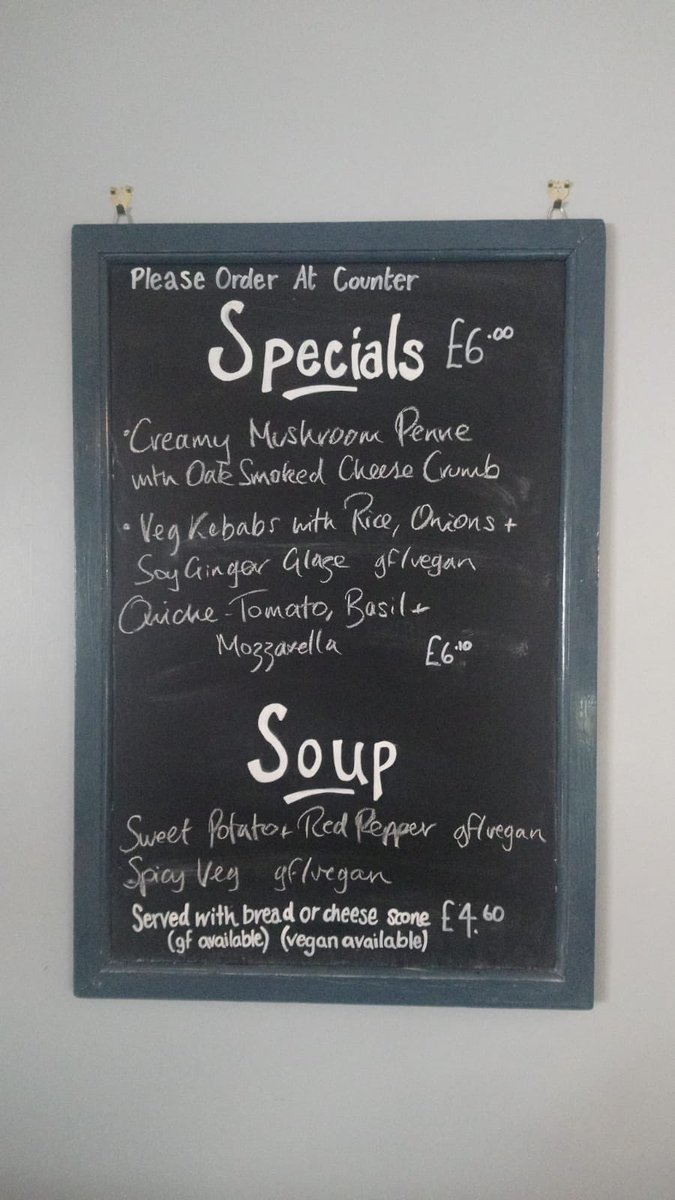 Please Order At Counter
Specials £6.00
• Creamy Mushroom Penne
with Oak Smoked Cheese Crumb
• Veg Kebabs with Rice, Onions +
Soy Ginger Glaze gf/vegan
Quiche - Tomato, Basil +
Mozzarella £6.10
Soup
Sweet Potato + Red Pepper gf/vegan
Spicy Veg gf/vegan
Served with bread or cheese scone £4.60
(gf available) (vegan available)